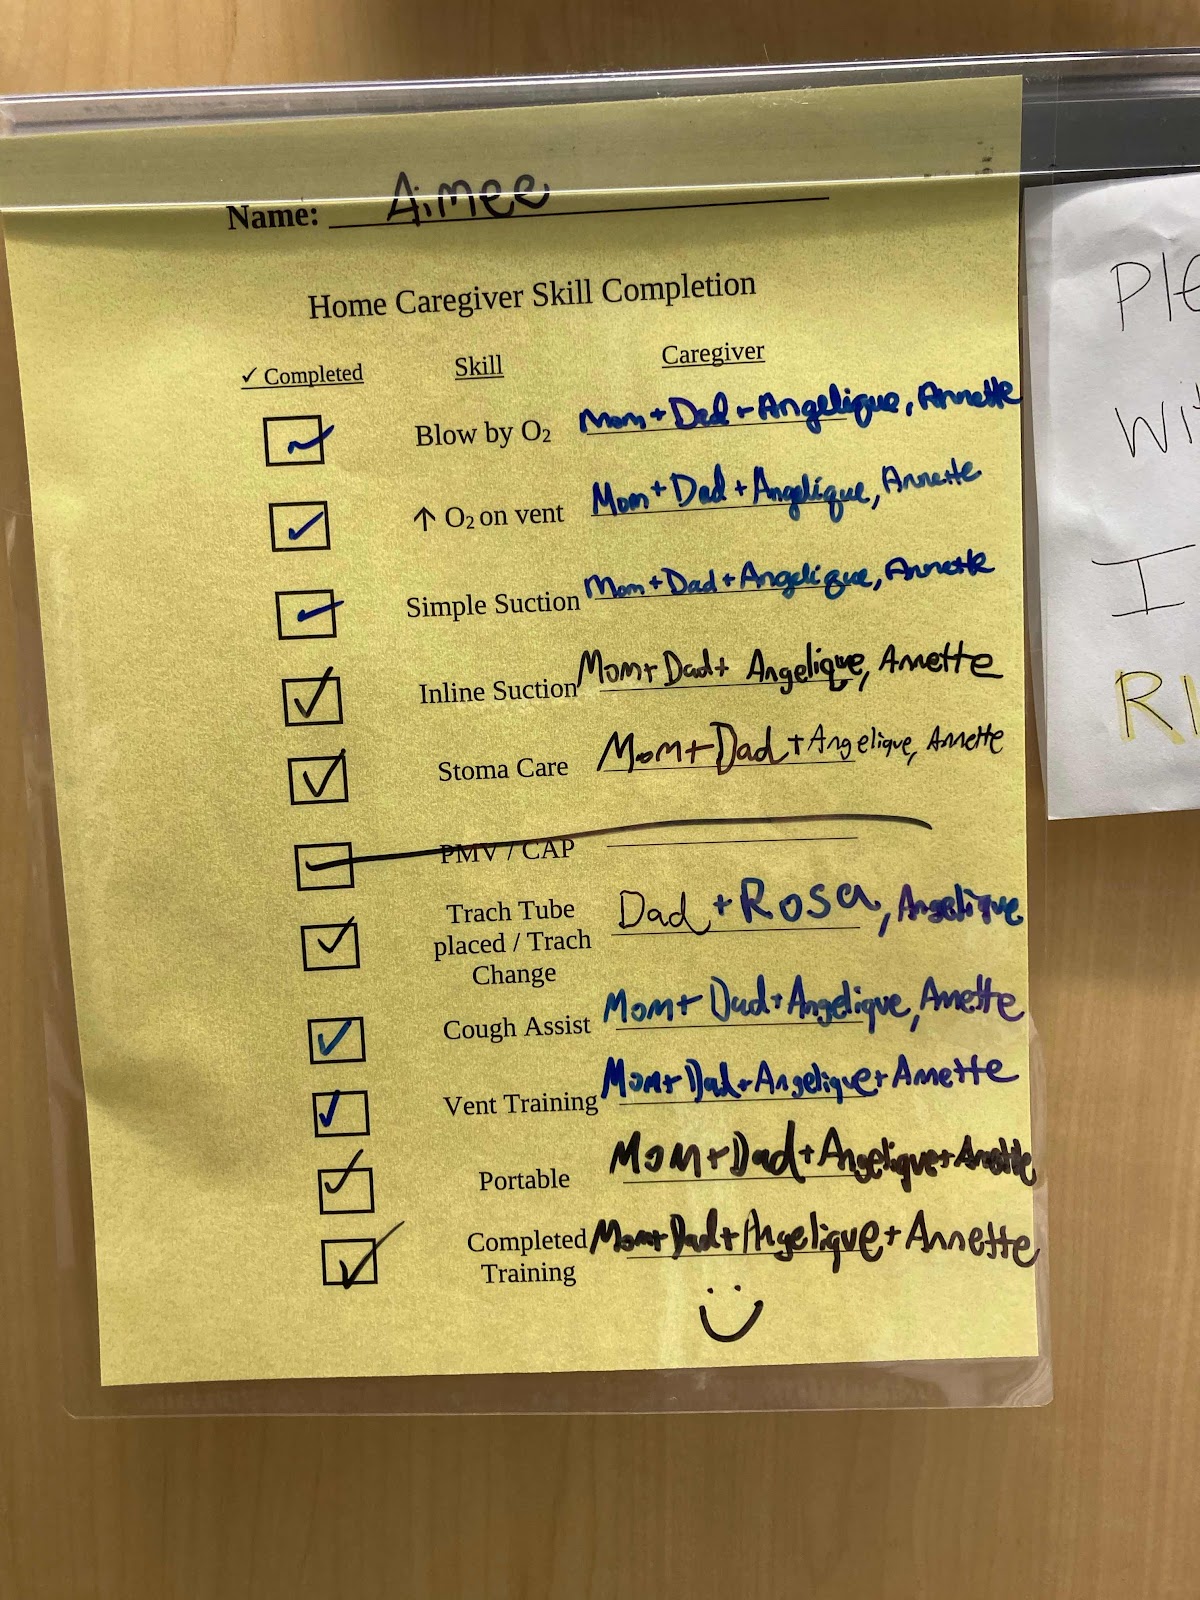 Name: Aimee
Home Caregiver Skill Completion
✓ Completed Skill Caregiver
Blow by O₂ Mom + Dad + Angelique, Annette
↑ O₂ on vent Mom + Dad + Angelique, Annette
Simple Suction Mom + Dad + Angelique, Annette
Inline Suction Mom + Dad + Angelique, Annette
Stoma Care Mom + Dad + Angelique, Annette
PMV / CAP
Trach Tube
placed / Trach Dad + Rosa, Angelique
Change
Cough Assist Mom + Dad + Angelique, Annette
Vent Training Mom + Dad + Angelique + Annette
Portable Mom + Dad + Angelique + Annette
Completed Mom + Dad + Angelique + Annette
Training
Ple
Wi
I
RI